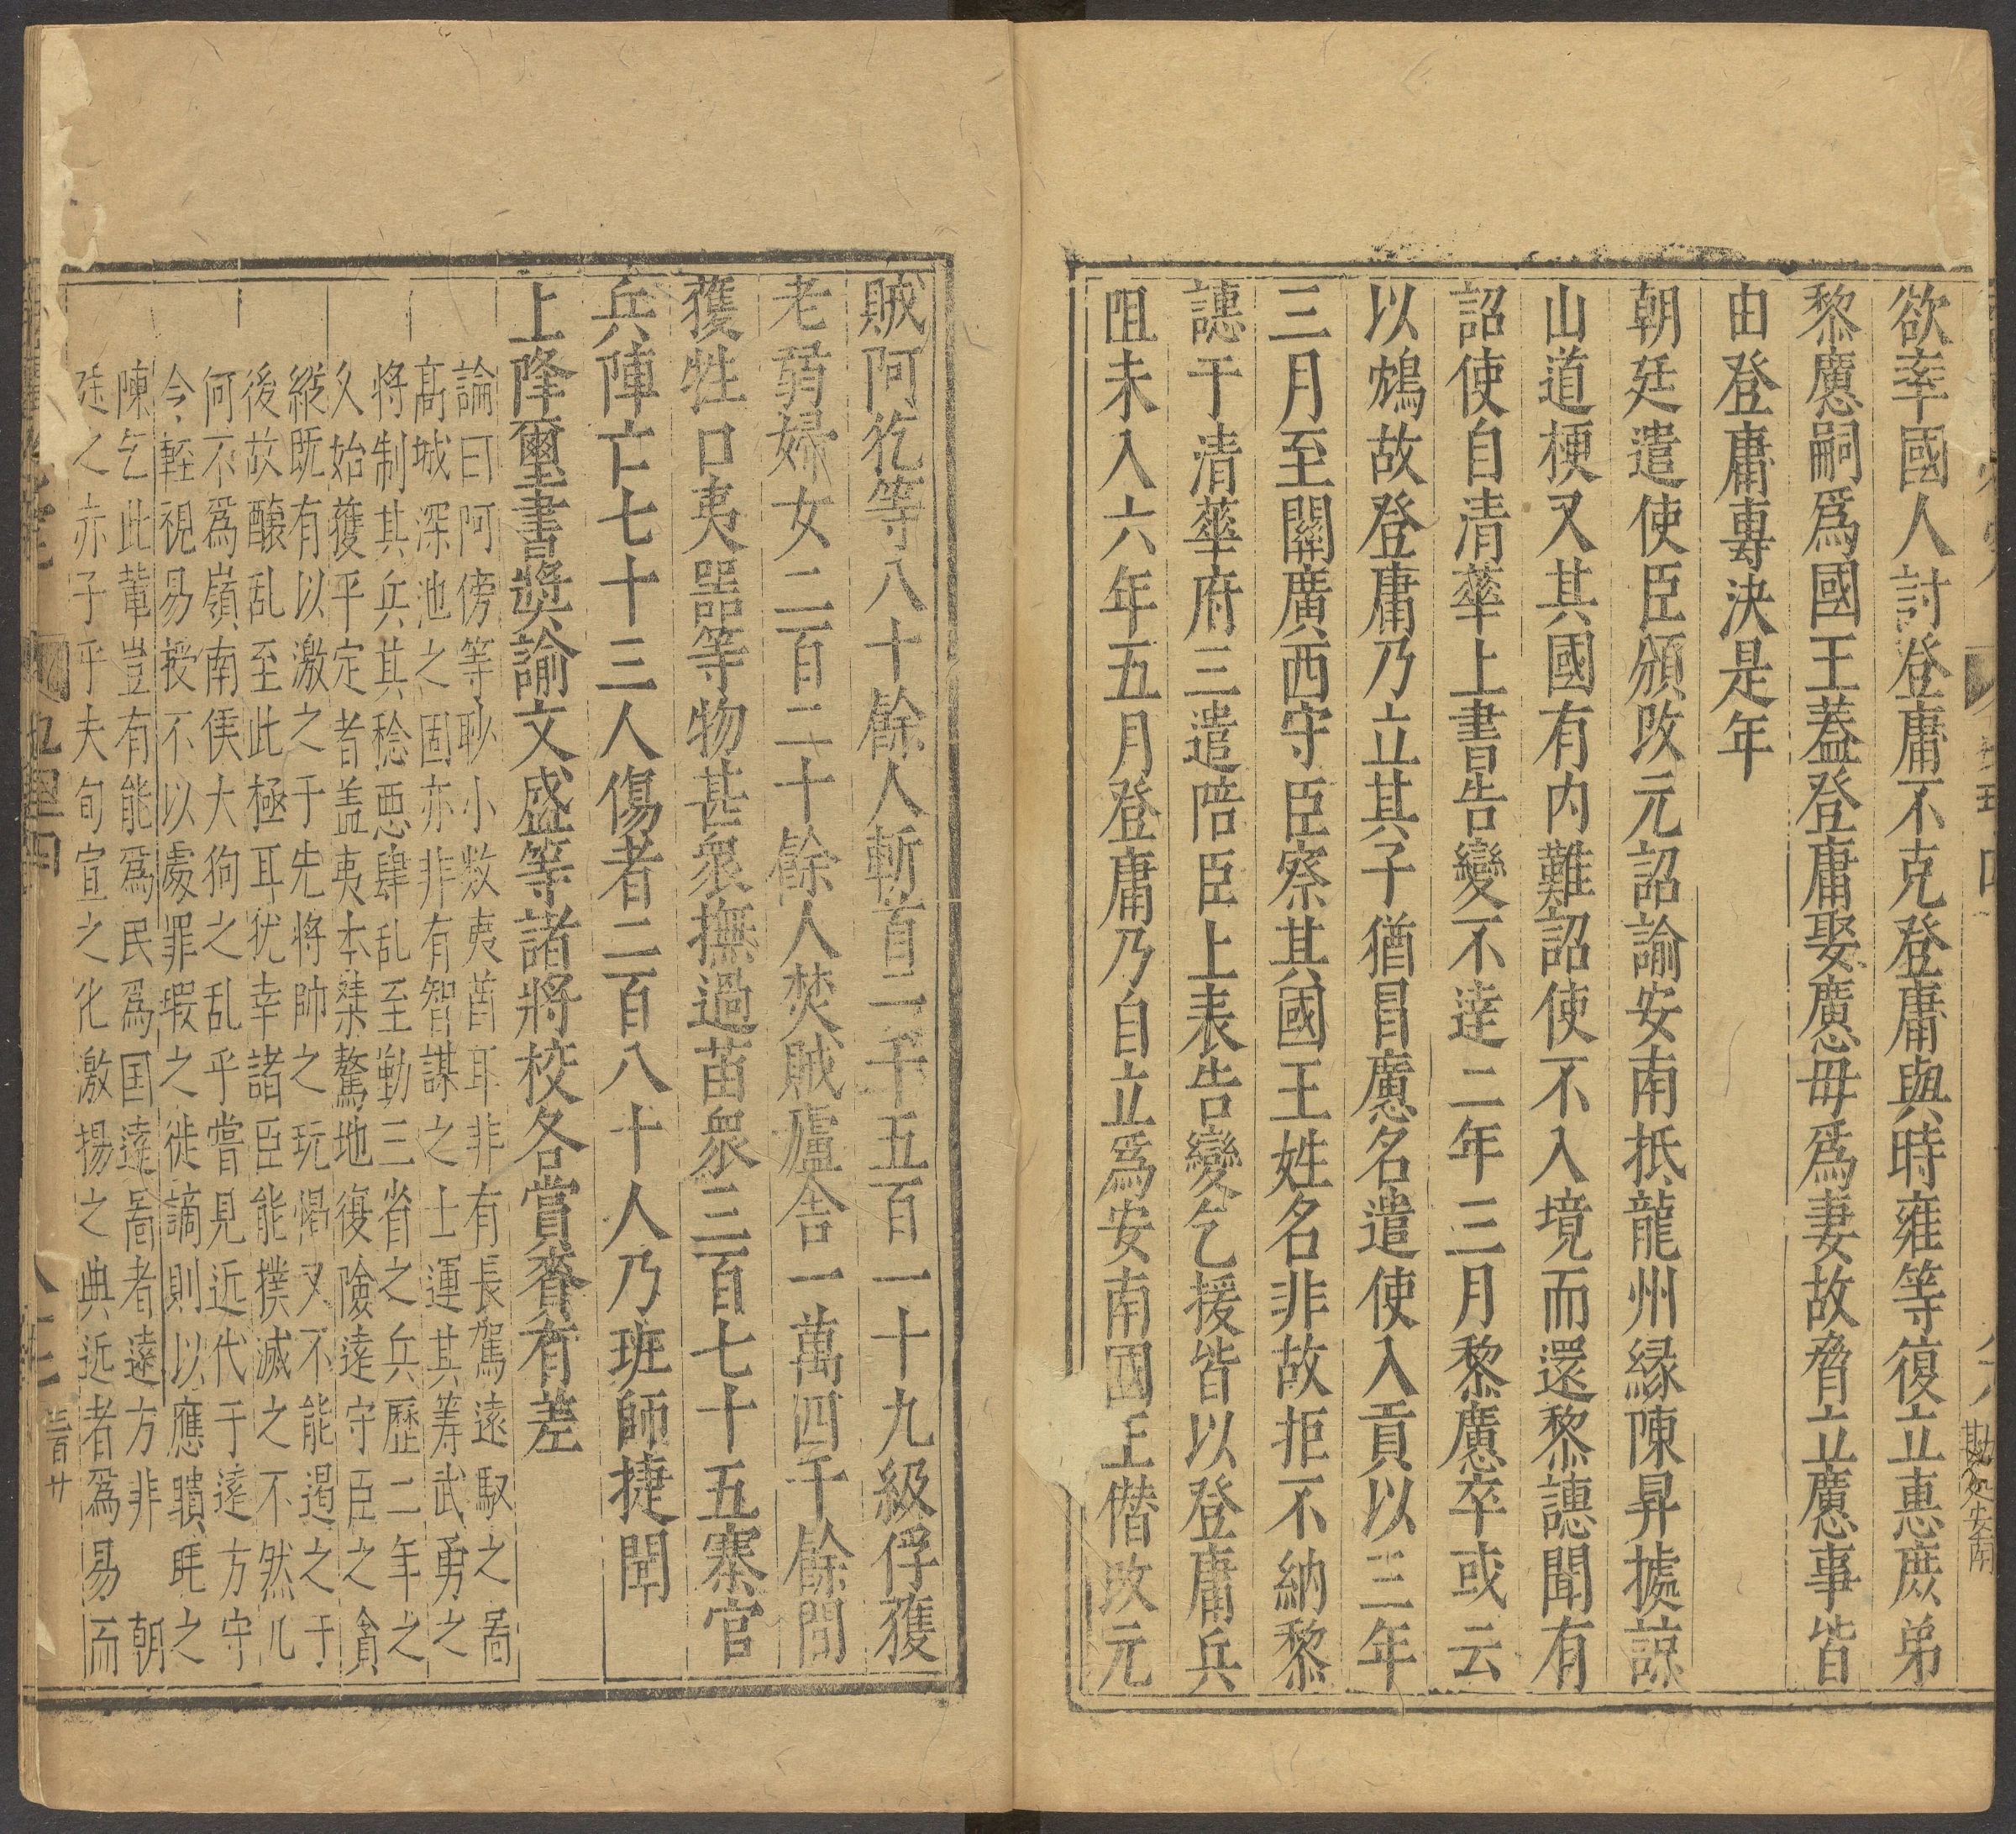 欲率國人討登庸不克登庸與時雍等復立惠庶弟
黎懬嗣爲國王蓋登庸娶廣懬毋爲妻故脅立懬事皆
由登庸專決是年
朝廷遣使臣頒改元詔諭安南抵龍州縁陳昇據諒
山道梗又其國有内難詔使不入境而還黎譓聞有
詔使自清華上書告變不達二年三月黎懬卒或云
以鴆故登庸乃立其子猶冒懬名遣使入貢以三年
三月至關廣西守臣察其國王姓名非故拒不納黎
譓于清華府三遣陪臣上表告變乞援皆以登庸兵
阻未入六年五月登庸乃自立爲安南國王僭改元
勘處安南
賊阿犵等八十餘人斬首二千五百一十九級俘獲
老弱婦女二百二十餘人焚賊廬舍一萬四千餘間
獲牲口夷器等物甚衆撫過苗衆三百七十五寨官
兵陣亡七十三人傷者二百八十人乃班師捷聞
上降璽書奬諭文盛等諸將校各賞賚有差
論曰阿傍等眇小数夷酋耳非有長駕遠馭之啚
髙城深池之固亦非有智謀之士運其筹武勇之
将制其兵其稔悪肆乱至勤三省之兵歷二年之
久始獲平定者盖夷本桀驁地復險遠守臣之貪
縦既有以激之于先将帥之玩愒又不能遏之于
後故釀乱至此極耳犹幸諸臣能撲滅之不然几
何不爲嶺南侯大狗之乱乎嘗見近代于逺方守
令輕視易授不以處罪瑕之徙謫則以應聵眊之
陳乞此輩豈有能爲民爲国逺啚者遠方非 朝
廷之赤子乎夫旬宣之化激揚之典近者爲易而